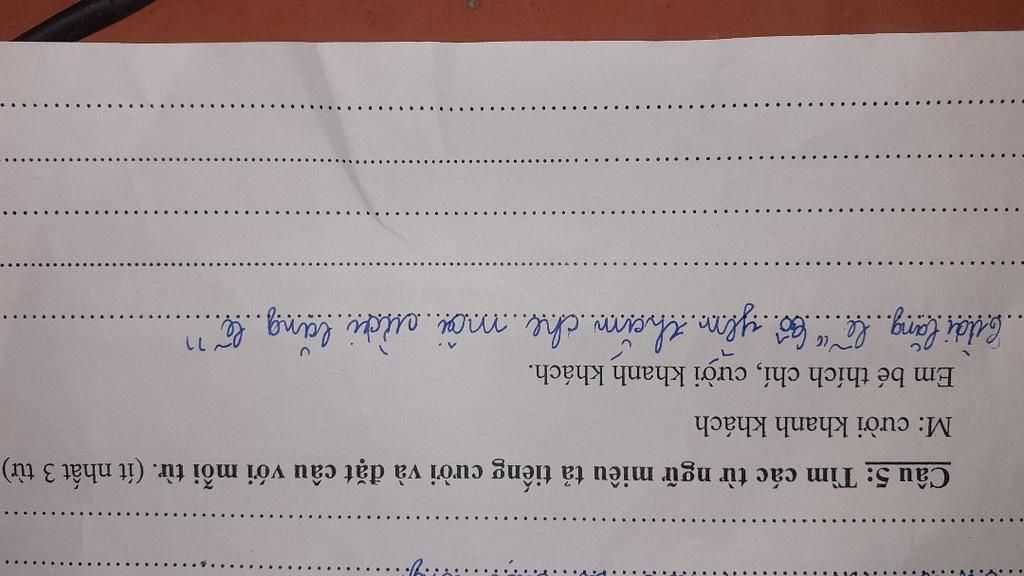 Câu 5: Tìm các từ ngữ miêu tả tiếng cười và đặt câu với mỗi từ. (ít nhất 3 từ)
M: cười khanh khách
Em bé thích chí, cười khanh khách.
Cười lẳng lẽ " yểm thăm che môi cười lẳng lẽ"